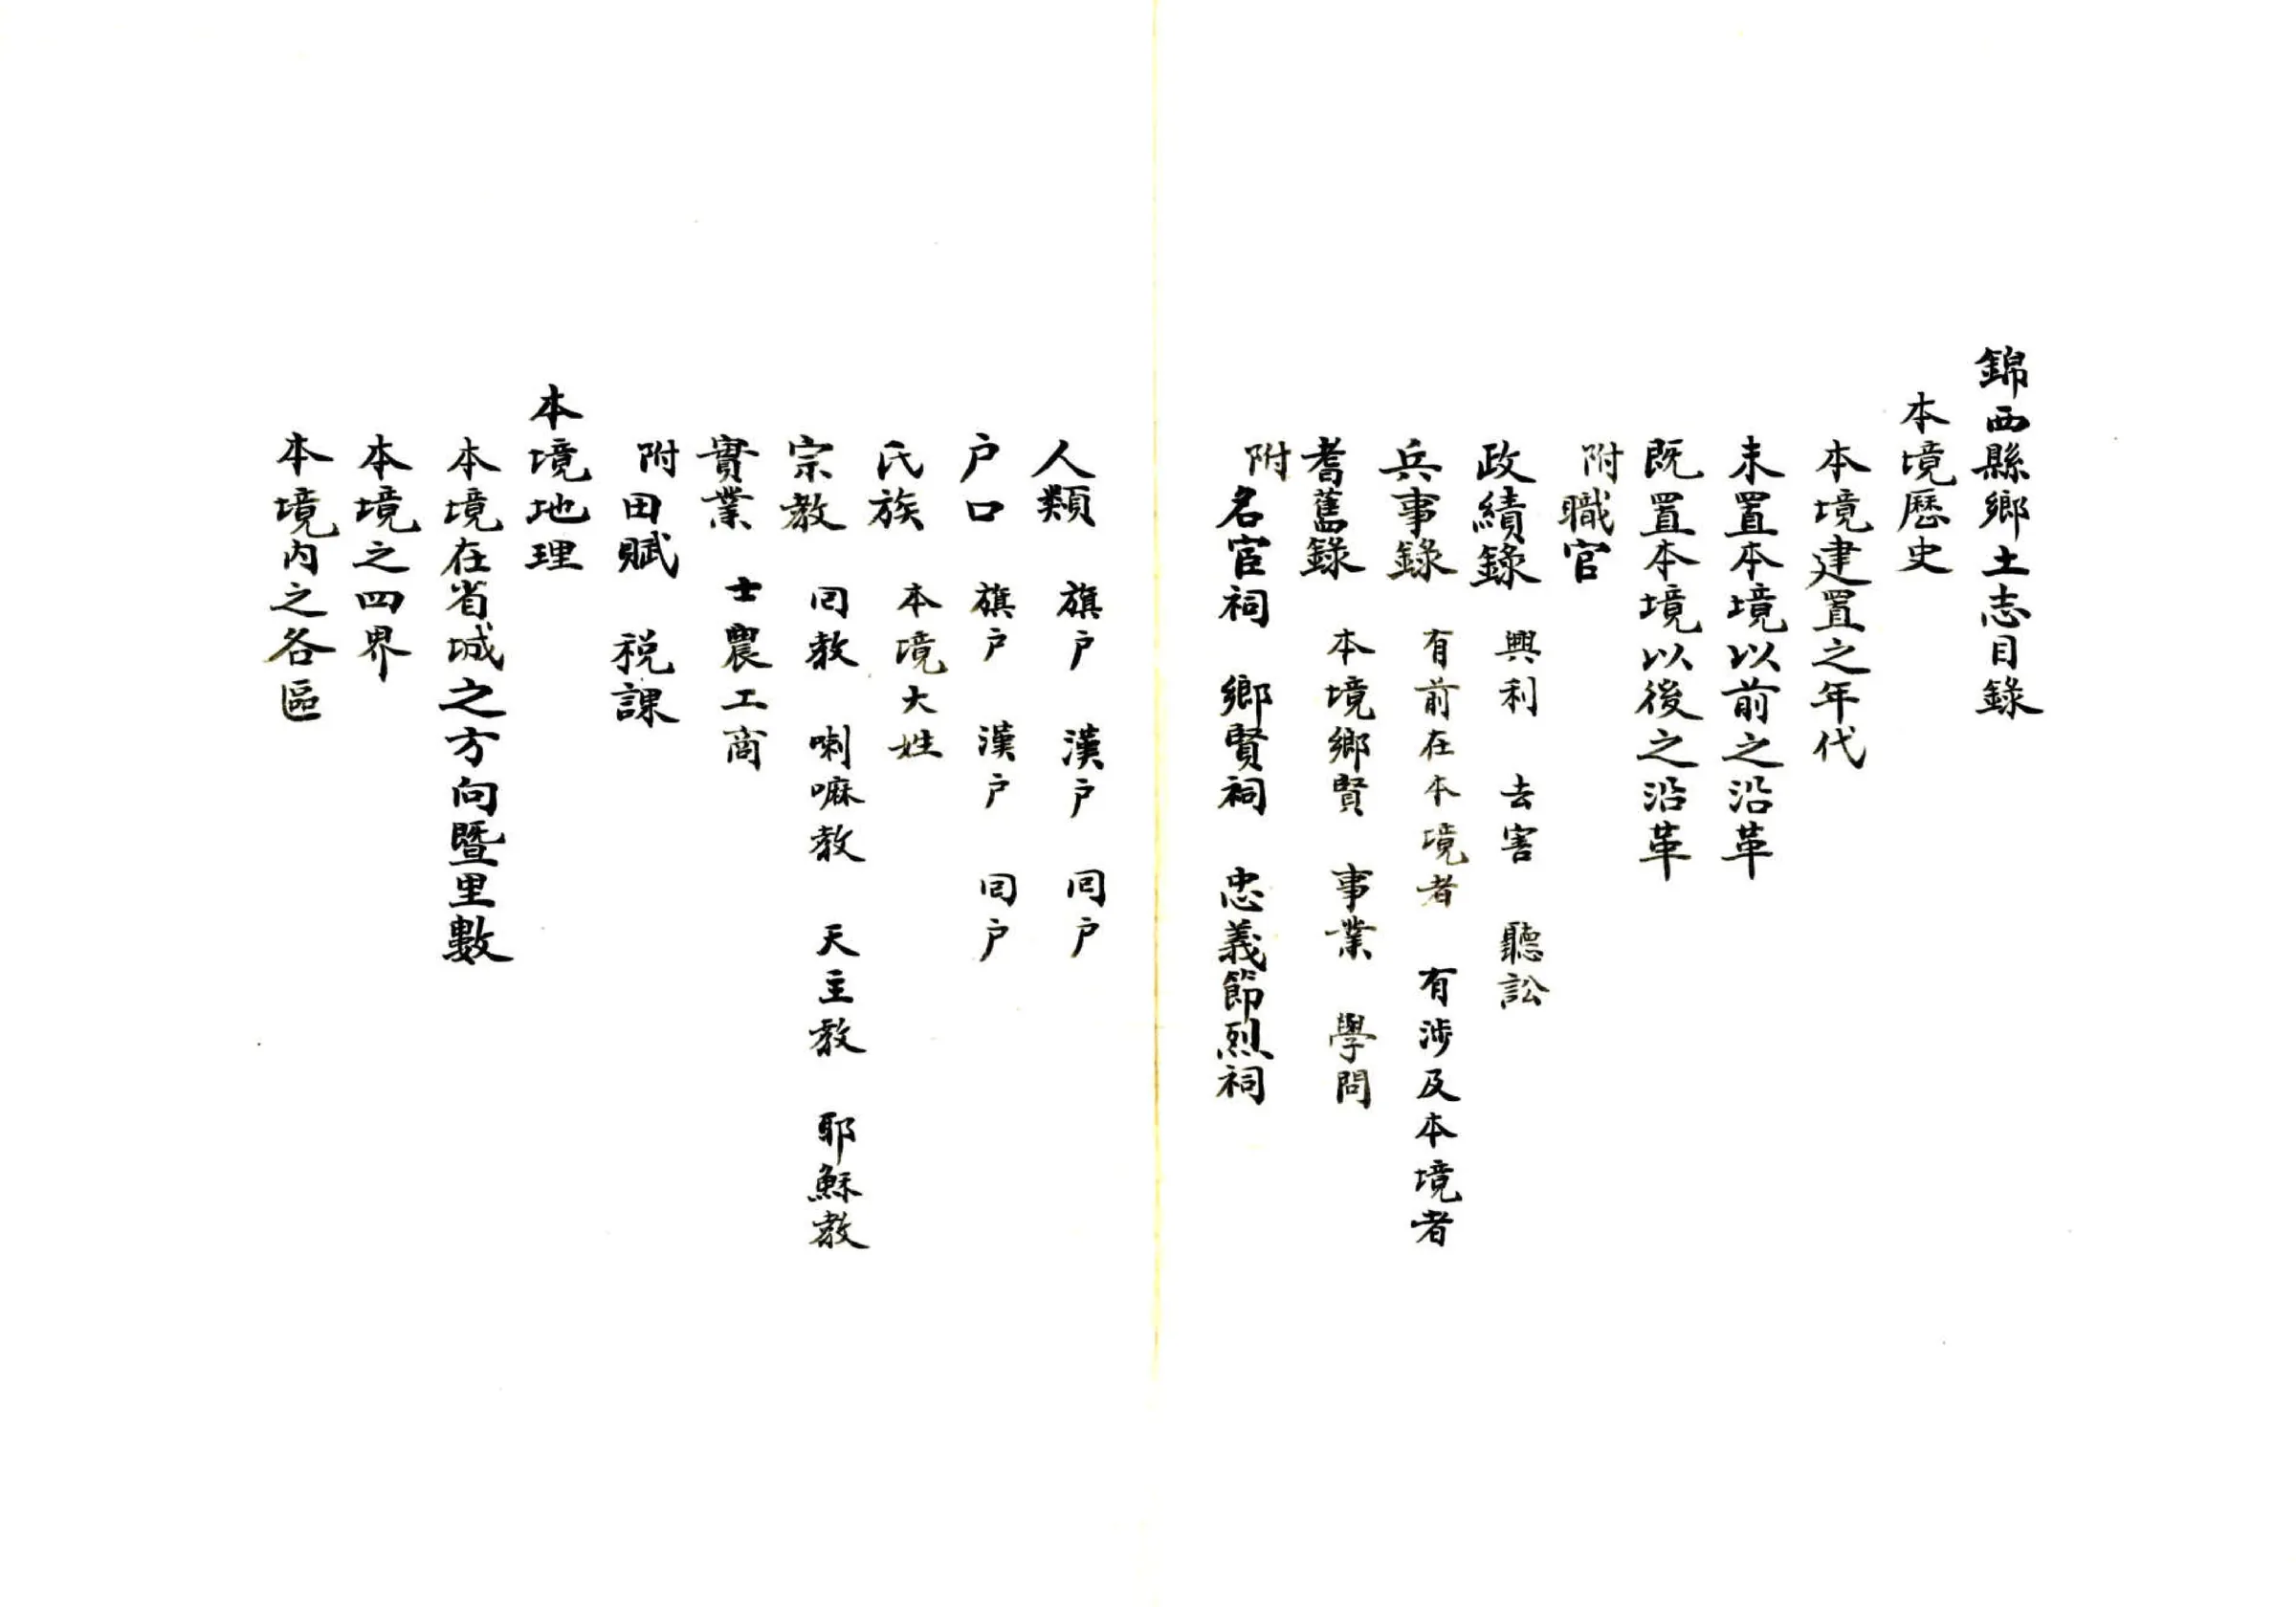 錦西縣鄉土志目錄
本境歷史
本境建置之年代
未置本境以前之沿革
既置本境以後之沿革
附職官
政績錄 興利 去害 聽訟
兵事錄 有前在本境者 有涉及本境者
耆舊錄 本境鄉賢 事業 學問
附名宦祠 鄉賢祠 忠義節烈祠
人類 旗户 漢户 囘户
户口 旗户 漢户 囘户
氏族 本境大姓
宗教 囘教 喇嘛教 天主教 耶穌教
實業 士農工商
附田賦 稅課
本境地理
本境在省城之方向暨里數
本境之四界
本境內之各區